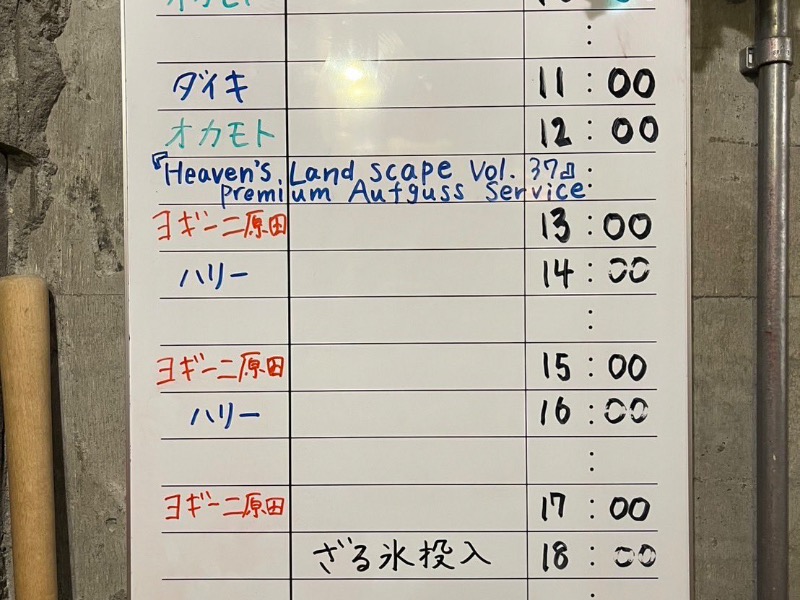 オカモト
ダイキ 11:00
オカモト 12:00
『Heaven's Landscape Vol. 37』
premium Aufguss Service
ヨギーニ原田 13:00
ハリー 14:00
:
ヨギーニ原田 15:00
ハリー 16:00
:
ヨギーニ原田 17:00
ざる氷投入 18:00